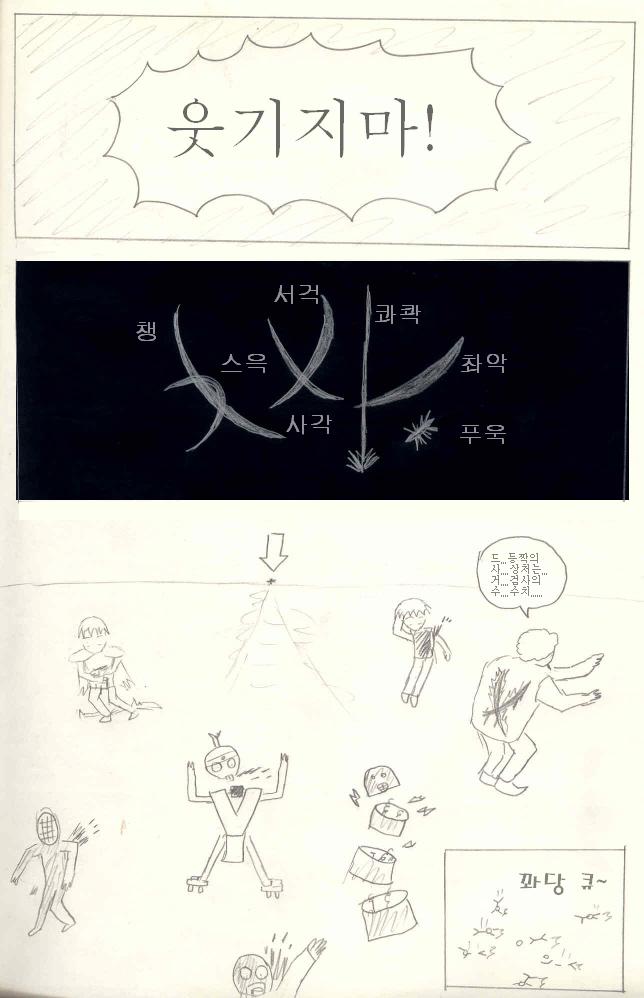 웃기지마!
서걱
콰콱
챙
스윽
촤악
사각
푸욱
드...등짝의
사...상처는...
거...검사의
수...수치......
꽈당 큐~